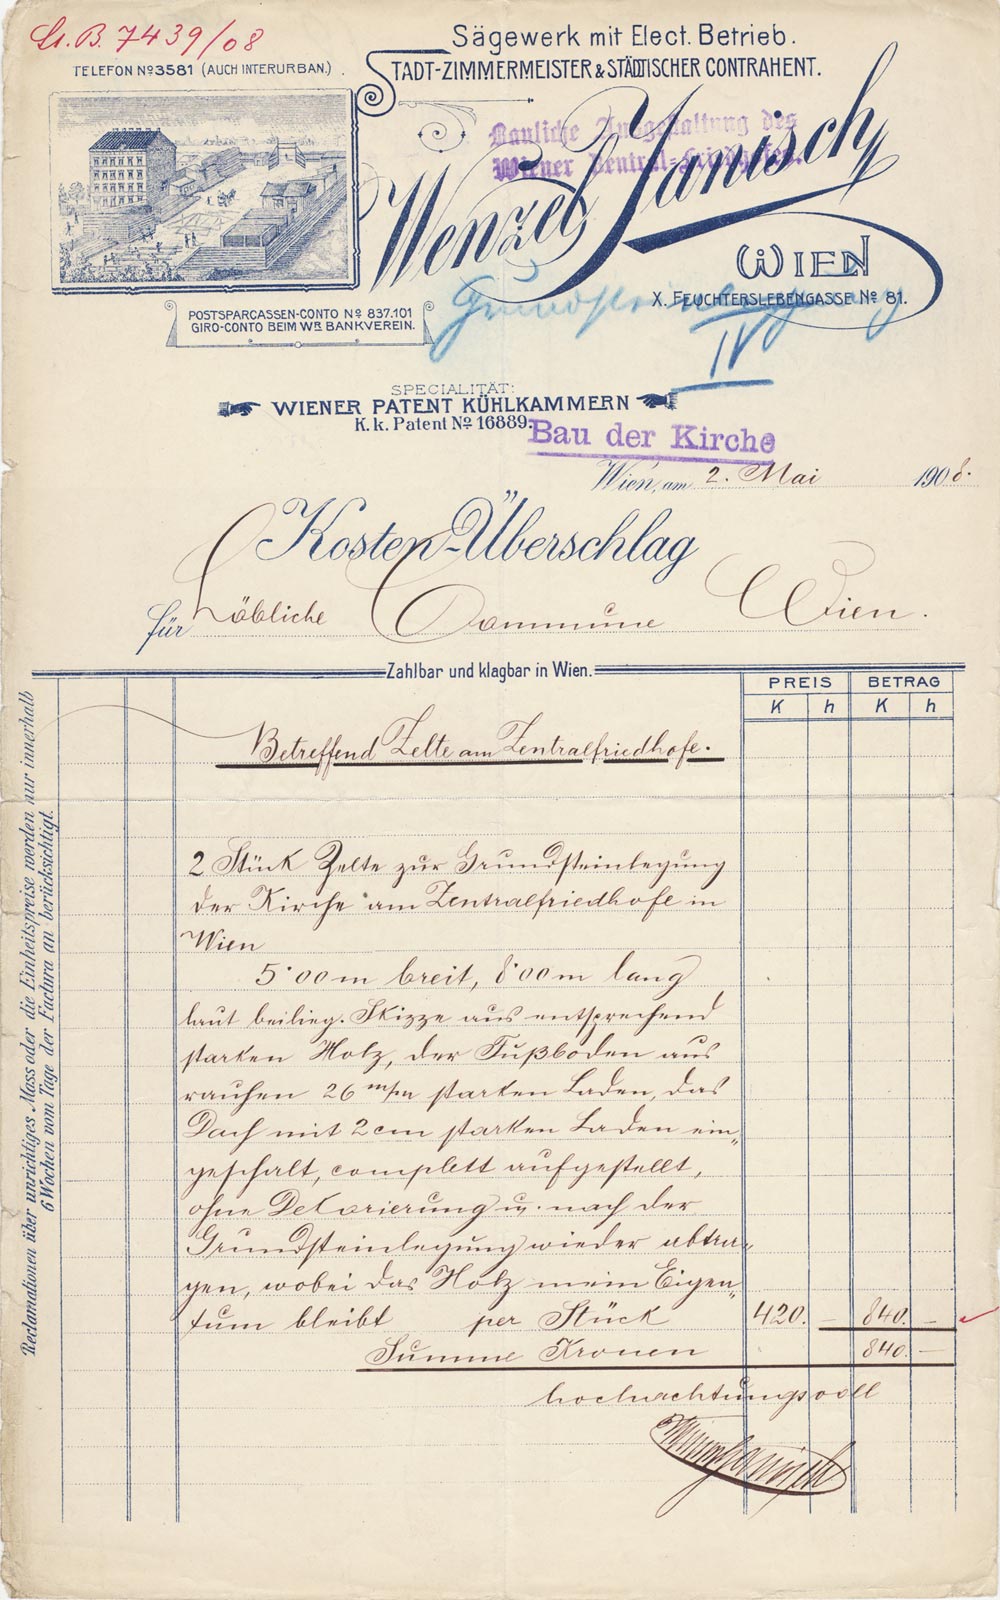 St. B. 7439/08
TELEFON No 3581 (AUCH INTERURBAN.)
Sägewerk mit Elect. Betrieb.
STADT-ZIMMERMEISTER & STÄDTISCHER CONTRAHENT.
Bauliche Ausgestaltung des
Wiener Zentral-Friedhofes.
Wenzel Janisch
WIEN
X. FEUCHTERSLEBENGASSE No 81.
Grundsteinlegung
IV
POSTSPARCASSEN-CONTO No 837.101
GIRO-CONTO BEIM WR BANKVEREIN.
SPECIALITÄT:
WIENER PATENT KÜHLKAMMERN
K. k. Patent No 16889.
Bau der Kirche
Wien, am 2. Mai 1908.
Kosten-Überschlag
für Löbliche Commune Wien.
Zahlbar und klagbar in Wien.
PREIS BETRAG
K h K h
Reclamationen über unrichtiges Mass oder die Einheitspreise werden nur innerhalb
6 Wochen vom Tage der Factura an berücksichtigt.
Betreffend Zelte am Zentralfriedhofe.
2 Stück Zelte zur Grundsteinlegung
der Kirche am Zentralfriedhofe in
Wien
5·00 m breit, 8·00 m lang
laut beilieg. Skizze aus entsprechend
starken Holz, der Fußboden aus
rauhen 26 m/m starken Laden, das
Dach mit 2 cm starken Laden ein„
geschalt, complett aufgestellt,
ohne Dekorierung u. nach der
Grundsteinlegung wieder abtra„
gen, wobei das Holz mein Eigen„
tum bleibt per Stück 420. – 840. –
Summe Kronen 840. –
hochachtungsvoll